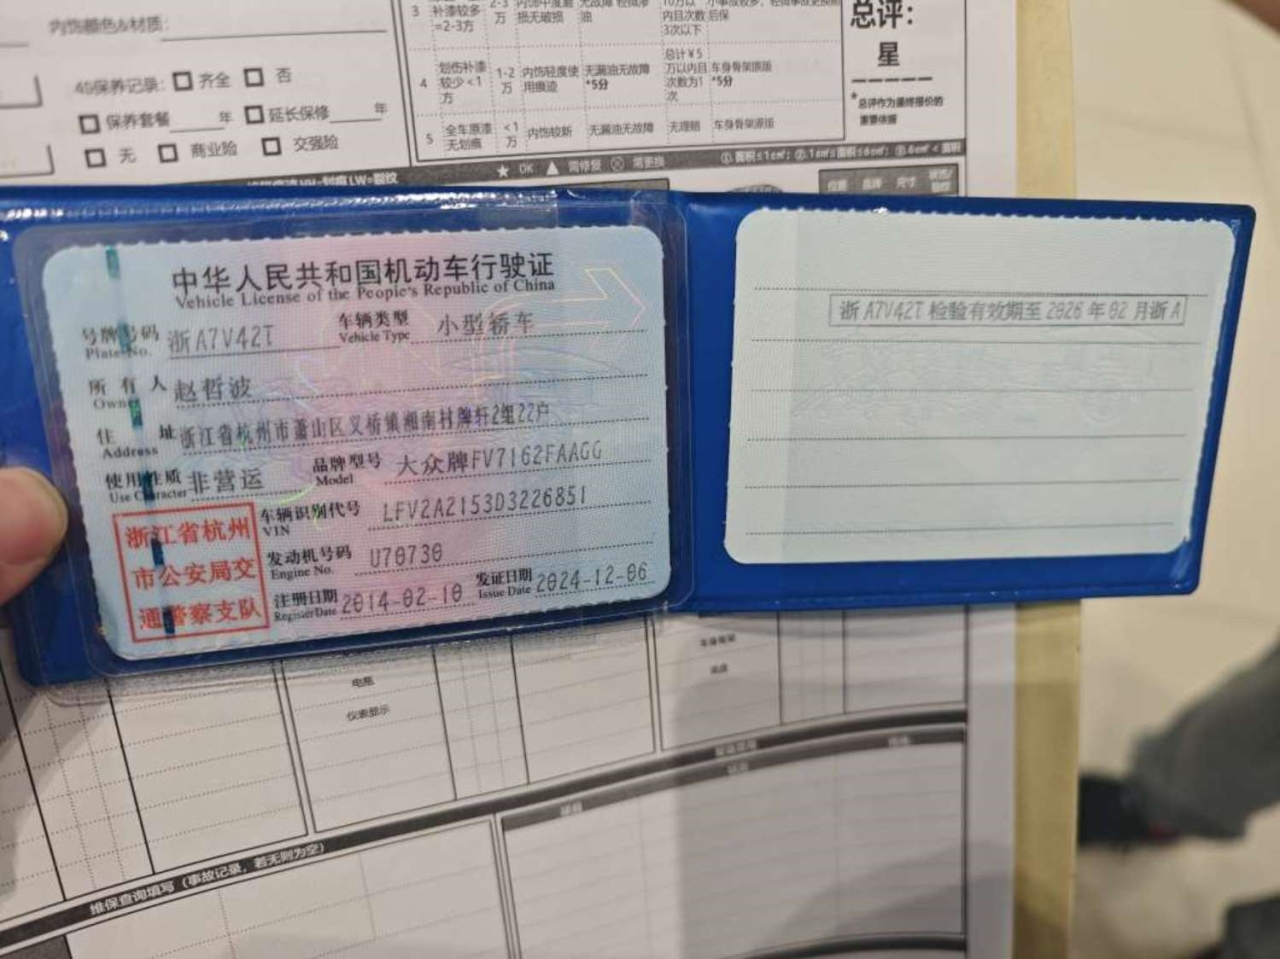 内饰颜色&材质：
4S保养记录： 齐全 否
保养套餐 年 延长保修 年
无 商业险 交强险
3 补漆较多=2-3方 2-3万
4 划伤补漆较少<1方 1-2万 内饰轻度使用痕迹 无漏油无故障*5分 总计¥5万以内且次数为1次 车身骨架原版*5分
5 全车原漆无划痕 <1万 内饰较新 无漏油无故障 无理赔 车身骨架原版
总评：
星
*总评作为最终报价的重要依据
★ OK ▲ 需修复 ⊗ 需更换
中华人民共和国机动车行驶证
Vehicle License of the People's Republic of China
号牌号码 浙A7V42T 车辆类型 小型轿车
Plate No. Vehicle Type
所有人 赵哲波
Owner
住址 浙江省杭州市萧山区义桥镇湘南村牌轩2组22户
Address
使用性质 非营运 品牌型号 大众牌FV7162FAAGG
Use Character Model
车辆识别代号 LFV2A2153D3226851
VIN
发动机号码 U70730
Engine No.
注册日期 2014-02-10 发证日期 2024-12-06
Register Date Issue Date
浙江省杭州
市公安局交
通警察支队
浙A7V42T 检验有效期至 2026 年 02 月浙A
电瓶
仪表显示
维保查询填写（事故记录，若无则为空）